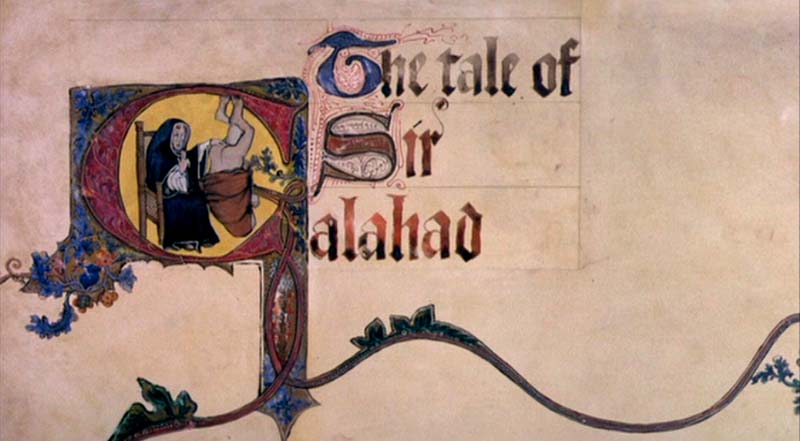 The tale of
Sir
Galahad